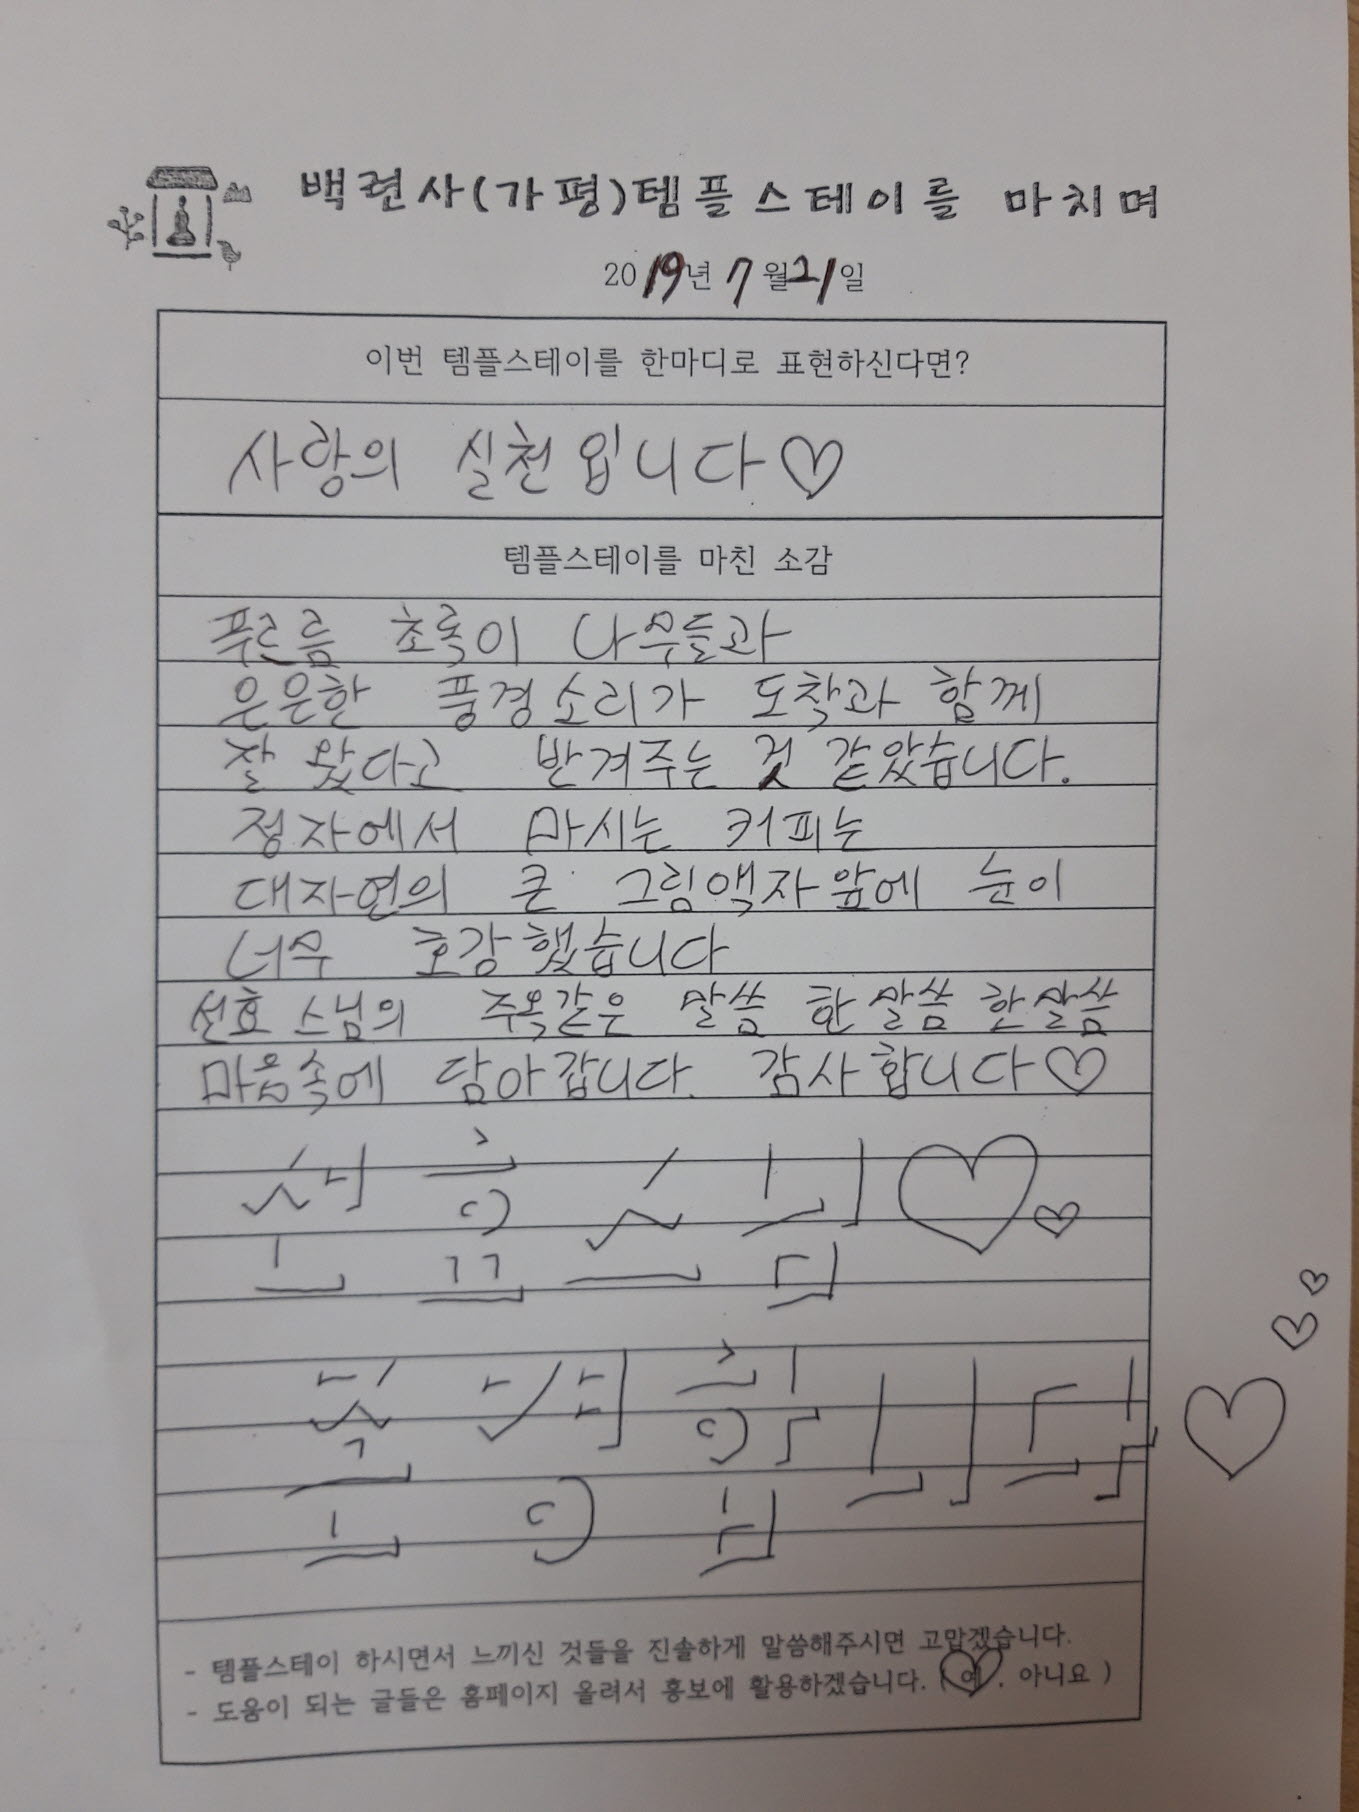 백련사(가평)템플스테이를 마치며
2019년 7월21일
이번 템플스테이를 한마디로 표현하신다면?
사랑의 실천입니다♡
템플스테이를 마친 소감
푸르름 초록이 나무들과
은은한 풍경소리가 도착과 함께
잘 왔다고 반겨주는 것 같았습니다.
정자에서 마시는 커피는
대자연의 큰 그림액자앞에 눈이
너무 호강했습니다
선효 스님의 주옥같은 말씀 한말씀 한말씀
마음속에 담아갑니다. 감사합니다♡
- 템플스테이 하시면서 느끼신 것들을 진솔하게 말씀해주시면 고맙겠습니다.
- 도움이 되는 글들은 홈페이지 올려서 홍보에 활용하겠습니다. (예, 아니요)